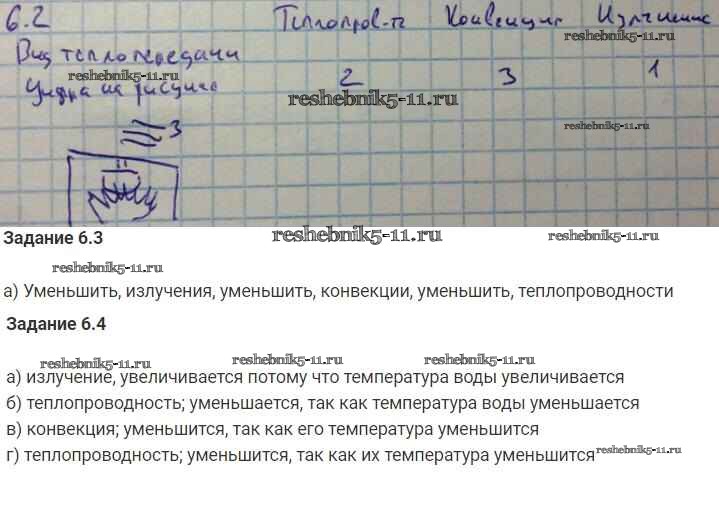 6.2 Теплопров-ть Конвекция Излучение
resheb​nik5-11.ru
Вид теплопередачи
reshebnik5-11.ru
Цифра на рисунке 2 3 1
reshebnik5-11.ru
reshebnik5-11.ru
3
Задание 6.3 reshebnik5-11.ru reshebnik5-11.ru
reshebnik5-11.ru
а) Уменьшить, излучения, уменьшить, конвекции, уменьшить, теплопроводности
Задание 6.4
reshebnik5-11.ru reshebnik5-11.ru reshebnik5-11.ru
а) излучение, увеличивается потому что температура воды увеличивается
б) теплопроводность; уменьшается, так как температура воды уменьшается
в) конвекция; уменьшится, так как его температура уменьшится
г) теплопроводность; уменьшится, так как их температура уменьшится reshebnik5-11.ru